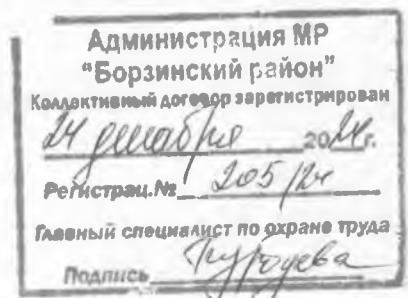 Администрация МР
"Борзинский район"
Коллективный договор зарегистрирован
24 декабря 2024г.
Регистрац.№ 205/24
Главный специалист по охране труда
Подпись